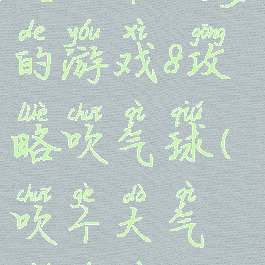 de yóu xì gōng
的游戏8攻
lüè chuī qì qiú
略吹气球(
chuī gè dà qì
吹个大气